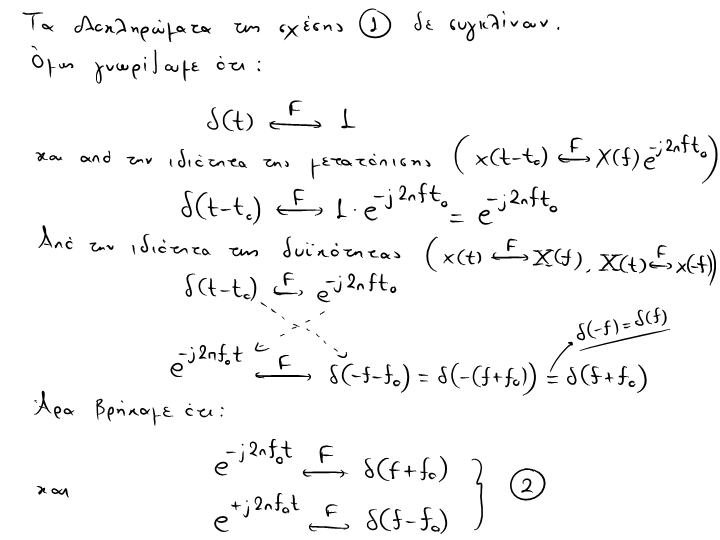 Τα ολοκληρώματα της σχέσης ① δε συγκλίνουν.
Όμως γνωρίζουμε ότι:
δ(t) ⟷F 1
και από την ιδιότητα της μετατόπισης (x(t-t₀) ⟷F X(f)e^{-j2πft₀})
δ(t-t₀) ⟷F 1·e^{-j2πft₀} = e^{-j2πft₀}
Από την ιδιότητα της δυϊκότητας (x(t) ⟷F X(f), X(t) ⟷F x(-f))
δ(t-t₀) ⟷F e^{-j2πft₀}
δ(-f)=δ(f)
e^{-j2πf₀t} ⟷F δ(-f-f₀) = δ(-(f+f₀)) = δ(f+f₀)
Άρα βρήκαμε ότι:
e^{-j2πf₀t} ⟷F δ(f+f₀)
και ②
e^{+j2πf₀t} ⟷F δ(f-f₀)